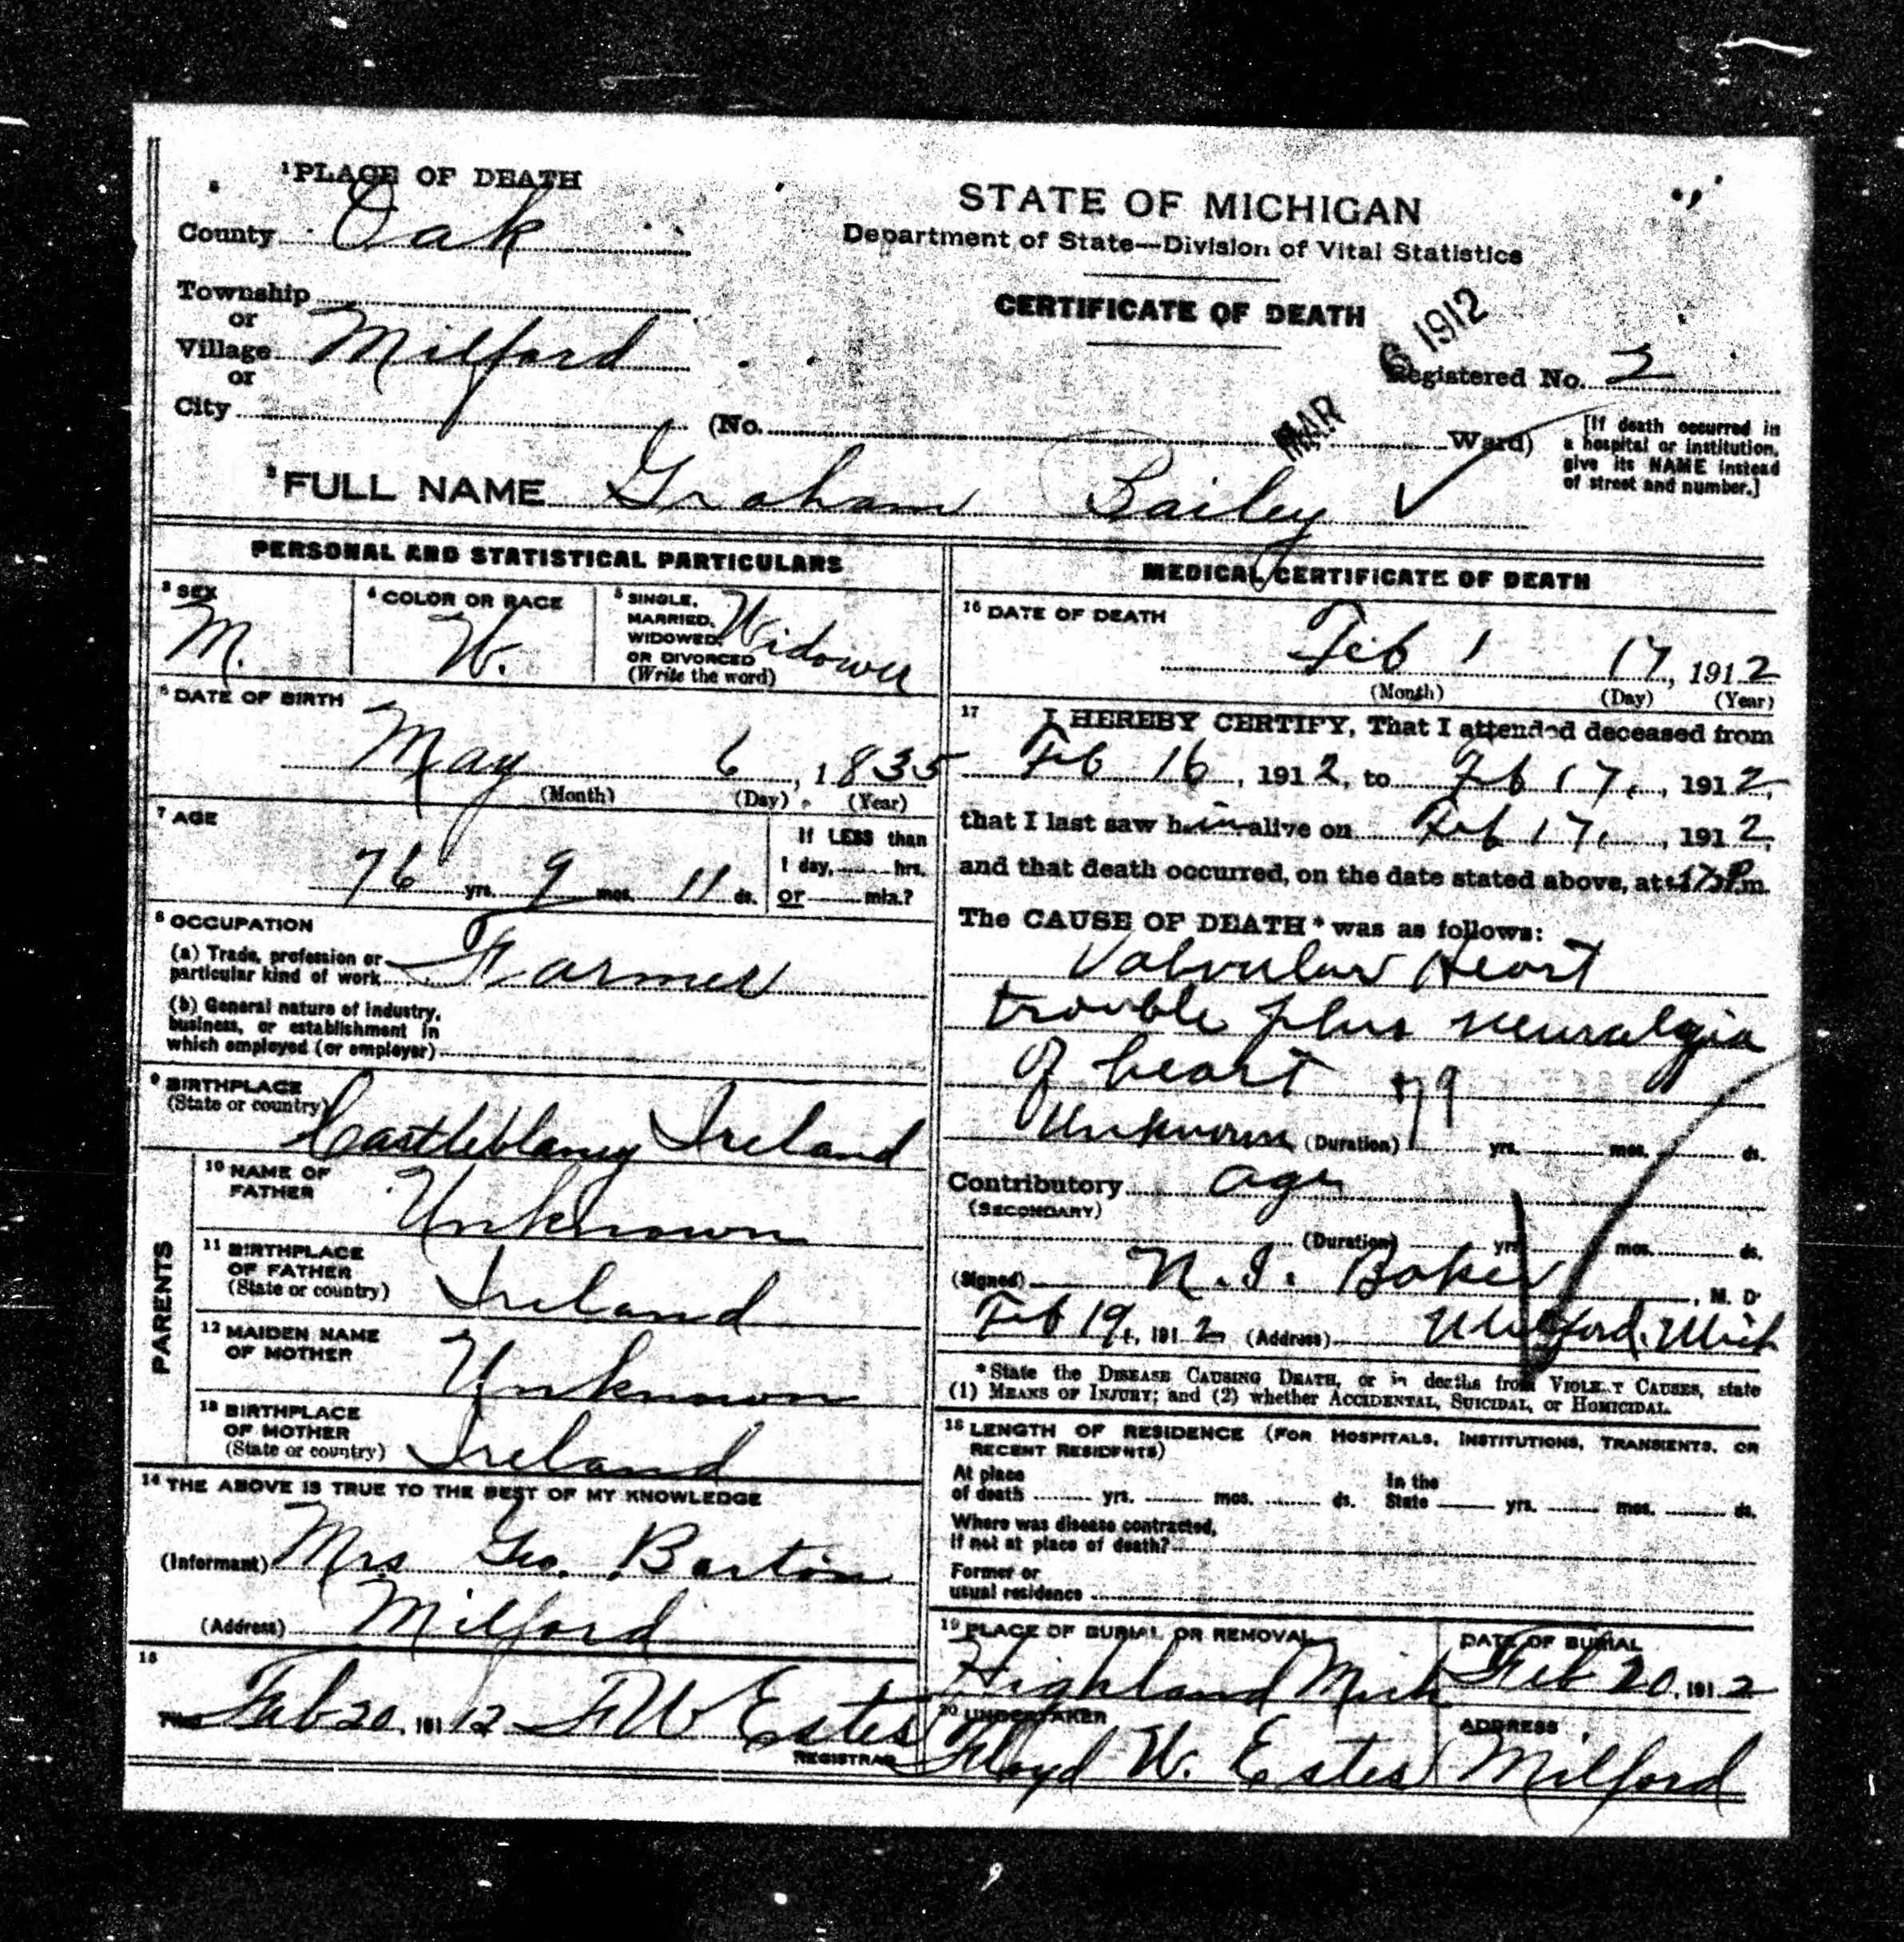 1 PLACE OF DEATH
County Oak
Township
or
Village Milford
or
City (No. Ward)
STATE OF MICHIGAN
Department of State—Division of Vital Statistics
CERTIFICATE OF DEATH
MAR 6 1912
Registered No.
[If death occurred in
a hospital or institution,
give its NAME instead
of street and number.]
2 FULL NAME Graham Bailey
PERSONAL AND STATISTICAL PARTICULARS
3 SEX
M.
4 COLOR OR RACE
W.
5 SINGLE,
MARRIED,
WIDOWED,
OR DIVORCED
(Write the word)
Widower
6 DATE OF BIRTH
May 6, 1835
(Month) (Day) (Year)
7 AGE
76 yrs. 9 mos. 11 ds.
If LESS than
1 day, hrs.
or min.?
8 OCCUPATION
(a) Trade, profession or
particular kind of work Farmer
(b) General nature of industry,
business, or establishment in
which employed (or employer)
9 BIRTHPLACE
(State or country)
Castleblaney Ireland
PARENTS
10 NAME OF
FATHER
Unknown
11 BIRTHPLACE
OF FATHER
(State or country)
Ireland
12 MAIDEN NAME
OF MOTHER
Unknown
13 BIRTHPLACE
OF MOTHER
(State or country)
Ireland
14 THE ABOVE IS TRUE TO THE BEST OF MY KNOWLEDGE
(Informant) Mrs Geo. Barton
(Address) Milford
15
Filed Feb 20, 191 12 F W Estes
REGISTRAR
MEDICAL CERTIFICATE OF DEATH
16 DATE OF DEATH
Feb 17, 1912
(Month) (Day) (Year)
17 I HEREBY CERTIFY, That I attended deceased from
Feb 16, 1912, to Feb 17, 1912,
that I last saw him alive on Feb 17, 1912,
and that death occurred, on the date stated above, at P m.
The CAUSE OF DEATH* was as follows:
Valvular Heart
trouble plus neuralgia
of heart 79
Unknown (Duration) yrs. mos. ds.
Contributory age
(SECONDARY)
(Duration) yrs. mos. ds.
(Signed) N. I. Baker, M. D.
Feb 19, 1912 (Address) Milford, Mich
*State the DISEASE CAUSING DEATH, or in deaths from VIOLENT CAUSES, state
(1) MEANS OF INJURY; and (2) whether ACCIDENTAL, SUICIDAL, or HOMICIDAL.
18 LENGTH OF RESIDENCE (FOR HOSPITALS, INSTITUTIONS, TRANSIENTS, OR
RECENT RESIDENTS)
At place
of death yrs. mos. ds.
In the
State yrs. mos. ds.
Where was disease contracted,
if not at place of death?
Former or
usual residence
19 PLACE OF BURIAL OR REMOVAL
Highland Mich
DATE OF BURIAL
Feb 20, 1912
20 UNDERTAKER
Floyd W. Estes
ADDRESS
Milford